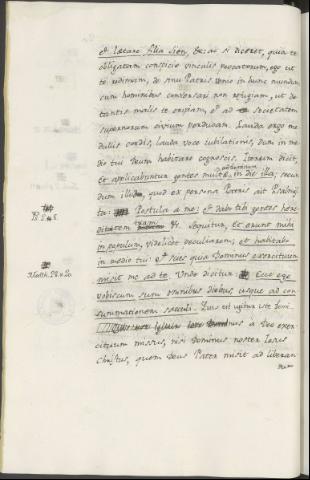 et lætare filia Sion, &c: ac si diceret, quia te
obligatam conspicio vinculis peccatorum, ego ut
te redimam, de sinu Patris venio in hunc mundum
cum hominibus conversari non refugiam, ut de
tantis malis te eripiam, et ad societatem
supernorum civium perducam. Lauda ergo me
dullis cordis, lauda voce jubilationis, dum in me
dio tui Deum habitare cognoscis. Iterum dicit,
et applicabuntur gentes multæ in die illa; secun
dum illud, quod ex persona Patris ait Psalmis
Ps. 2
ta: Postula a me: et dabo tibi gentes hære
ditatem tuam &c. Sequitur, Et erunt mihi
in populum, videlicet peculiarem; et habitabo
in medio tui: et scies quia Dominus exercituum
Matth. 28. v. 20.
misit me ad te. Unde dicitur: Ecce ego
vobiscum sum omnibus diebus, usque ad con
summationem sæculi. Quis est igitur iste Domi
nus a Deo exer
cituum missus, nisi Dominus noster Jesus
Christus, quem Deus Pater misit ad liberan
dum